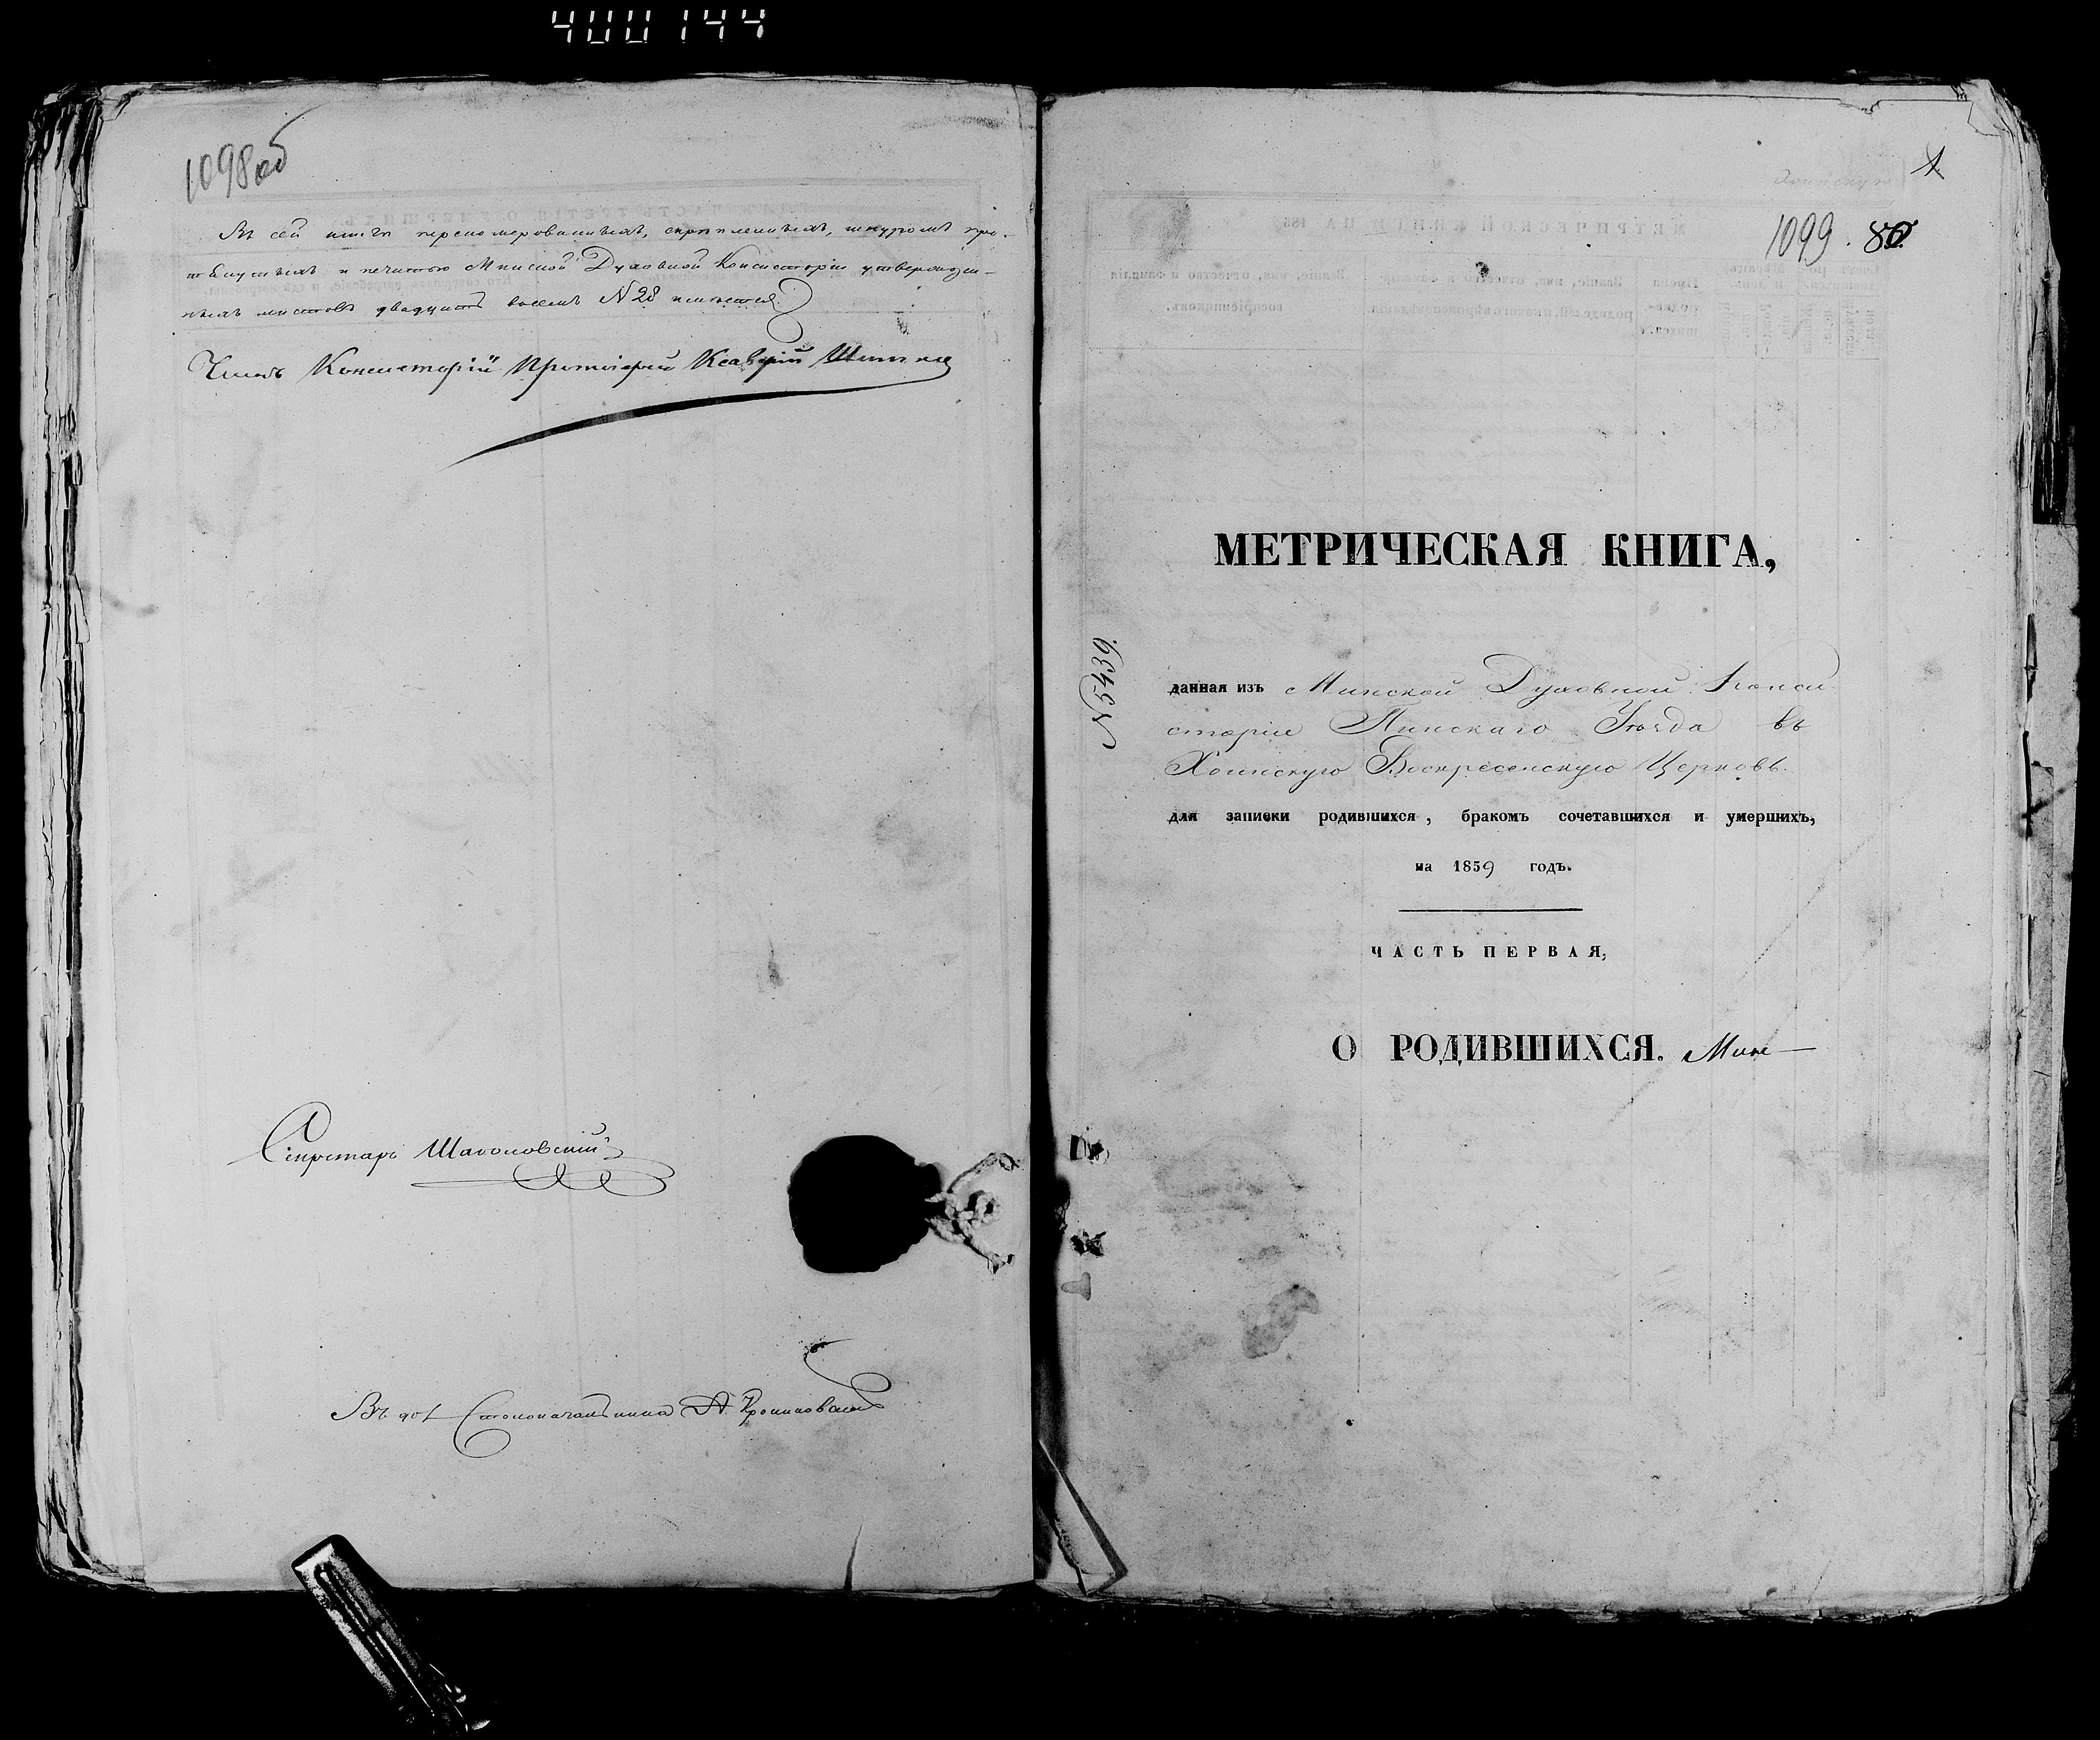 400144
1098об
Въ сей книгѣ перенумерованныхъ, скрѣпленныхъ, шнуромъ про-
и печатью Минской Духовной Консисторіи утвержден-
ныхъ листовъ двадцать восемь N 28 имѣется
Членъ Консисторіи Протоіерей Ксаверій
Секретарь
Въ дол. Столоначальника А.
1
1099. 80
МЕТРИЧЕСКАЯ КНИГА,
N 5439.
данная изъ Минской Духовной Конси
сторіи Пинскаго Уѣзда въ
Хоинскую Воскресенскую Церковь.
для записки родившихся, бракомъ сочетавшихся и умершихъ,
на 1859 годъ.
ЧАСТЬ ПЕРВАЯ,
О РОДИВШИХСЯ.